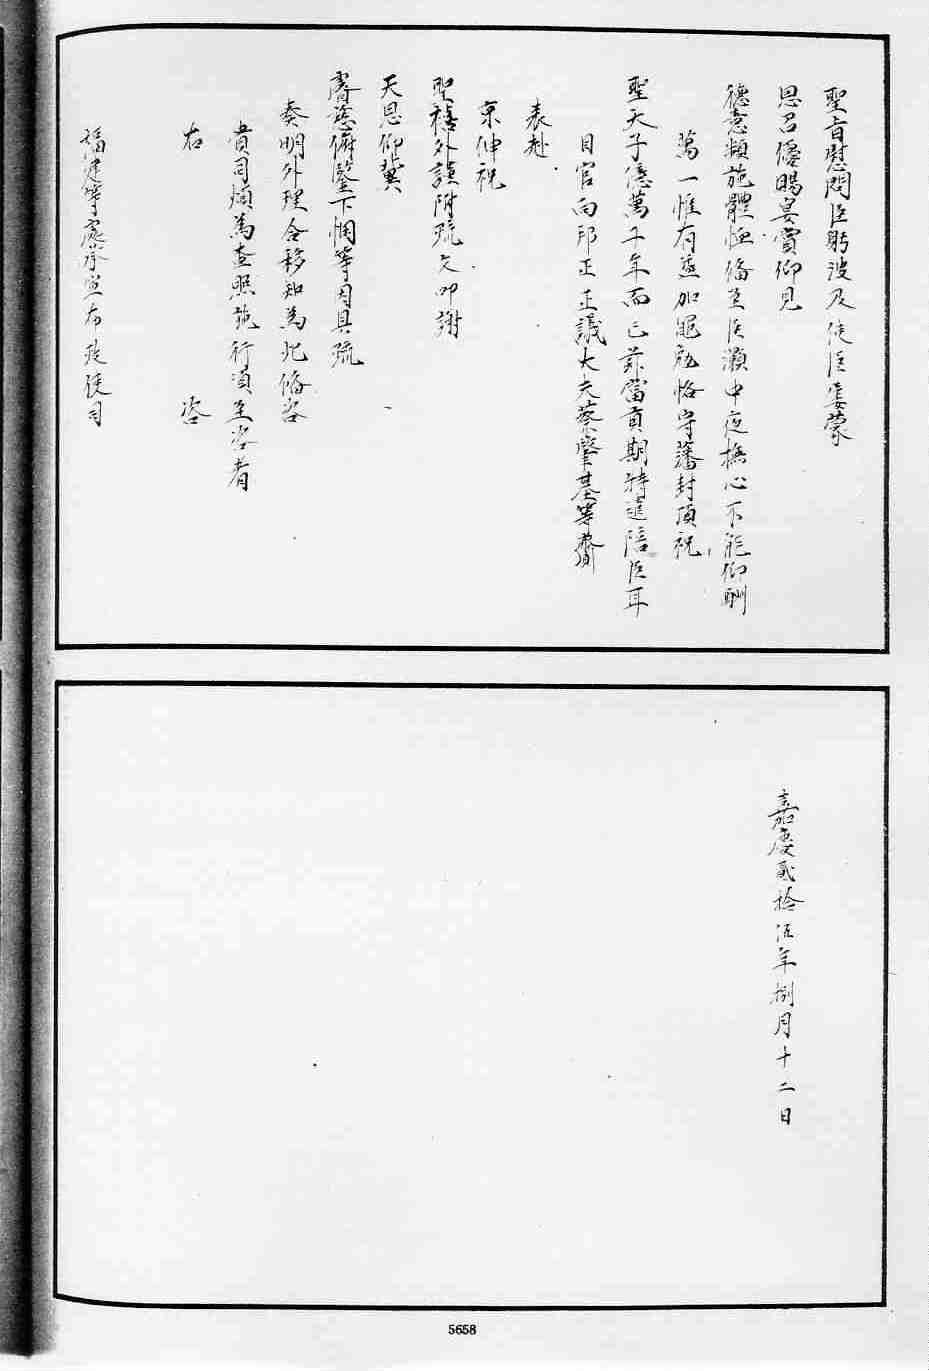 聖旨慰問臣躬波及使臣宴蒙
恩召優賜宴賞仰見
德意頻施體恤備至臣灝中夜撫心不能仰酬
萬一惟有益加黽勉恪守藩封頂祝
聖天子億萬千年而已茲當貢期特遣陪臣耳
目官向邦正正議大夫蔡肇基等齎
表赴
京伸祝
聖禧外謹附疏文叩謝
天恩仰冀
睿慈俯鑒下悃等因具疏
奏明外理合移知為此備咨
貴司煩為查照施行須至咨者
右 咨
福建等處承宣布政使司
嘉慶貳拾伍年捌月十二日
5658